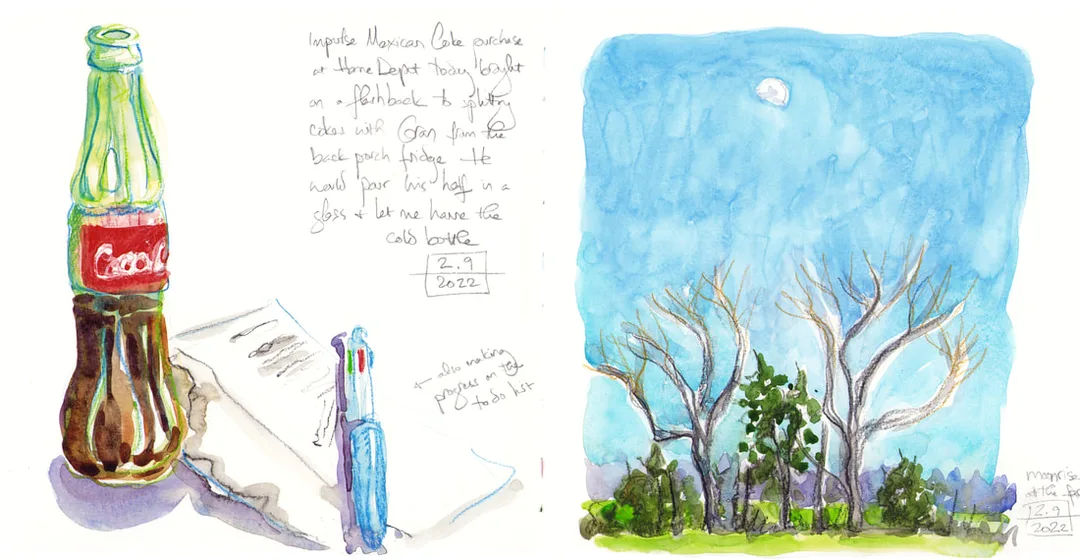 Impulse Mexican Coke purchase
at Home Depot today brought
on a flashback to splitting
cokes with Gran from the
back porch fridge He
would pour his half in a
glass + let me have the
cold bottle
2.9
2022
+ also making
progress on the
to do list
moonrise
at the
12.9
2022